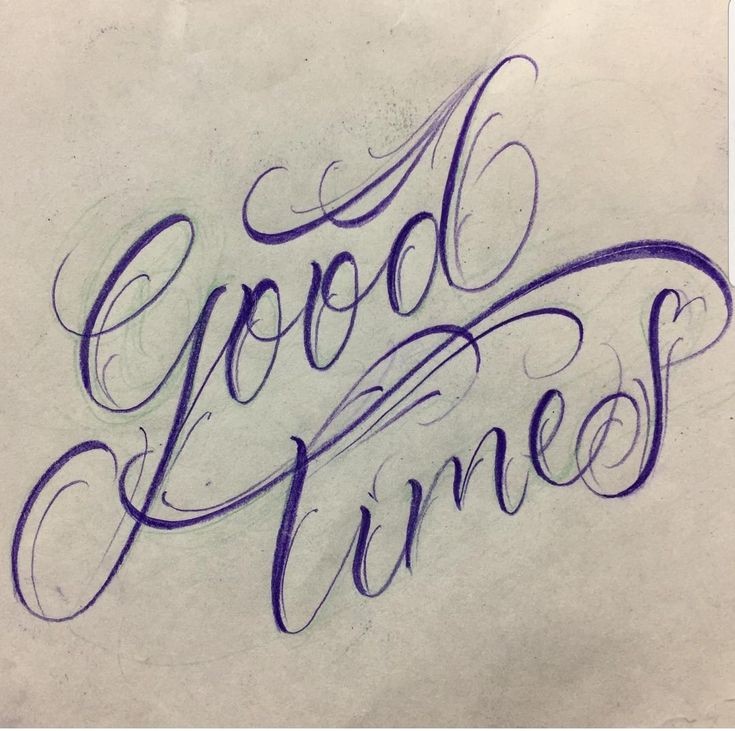 Good
times